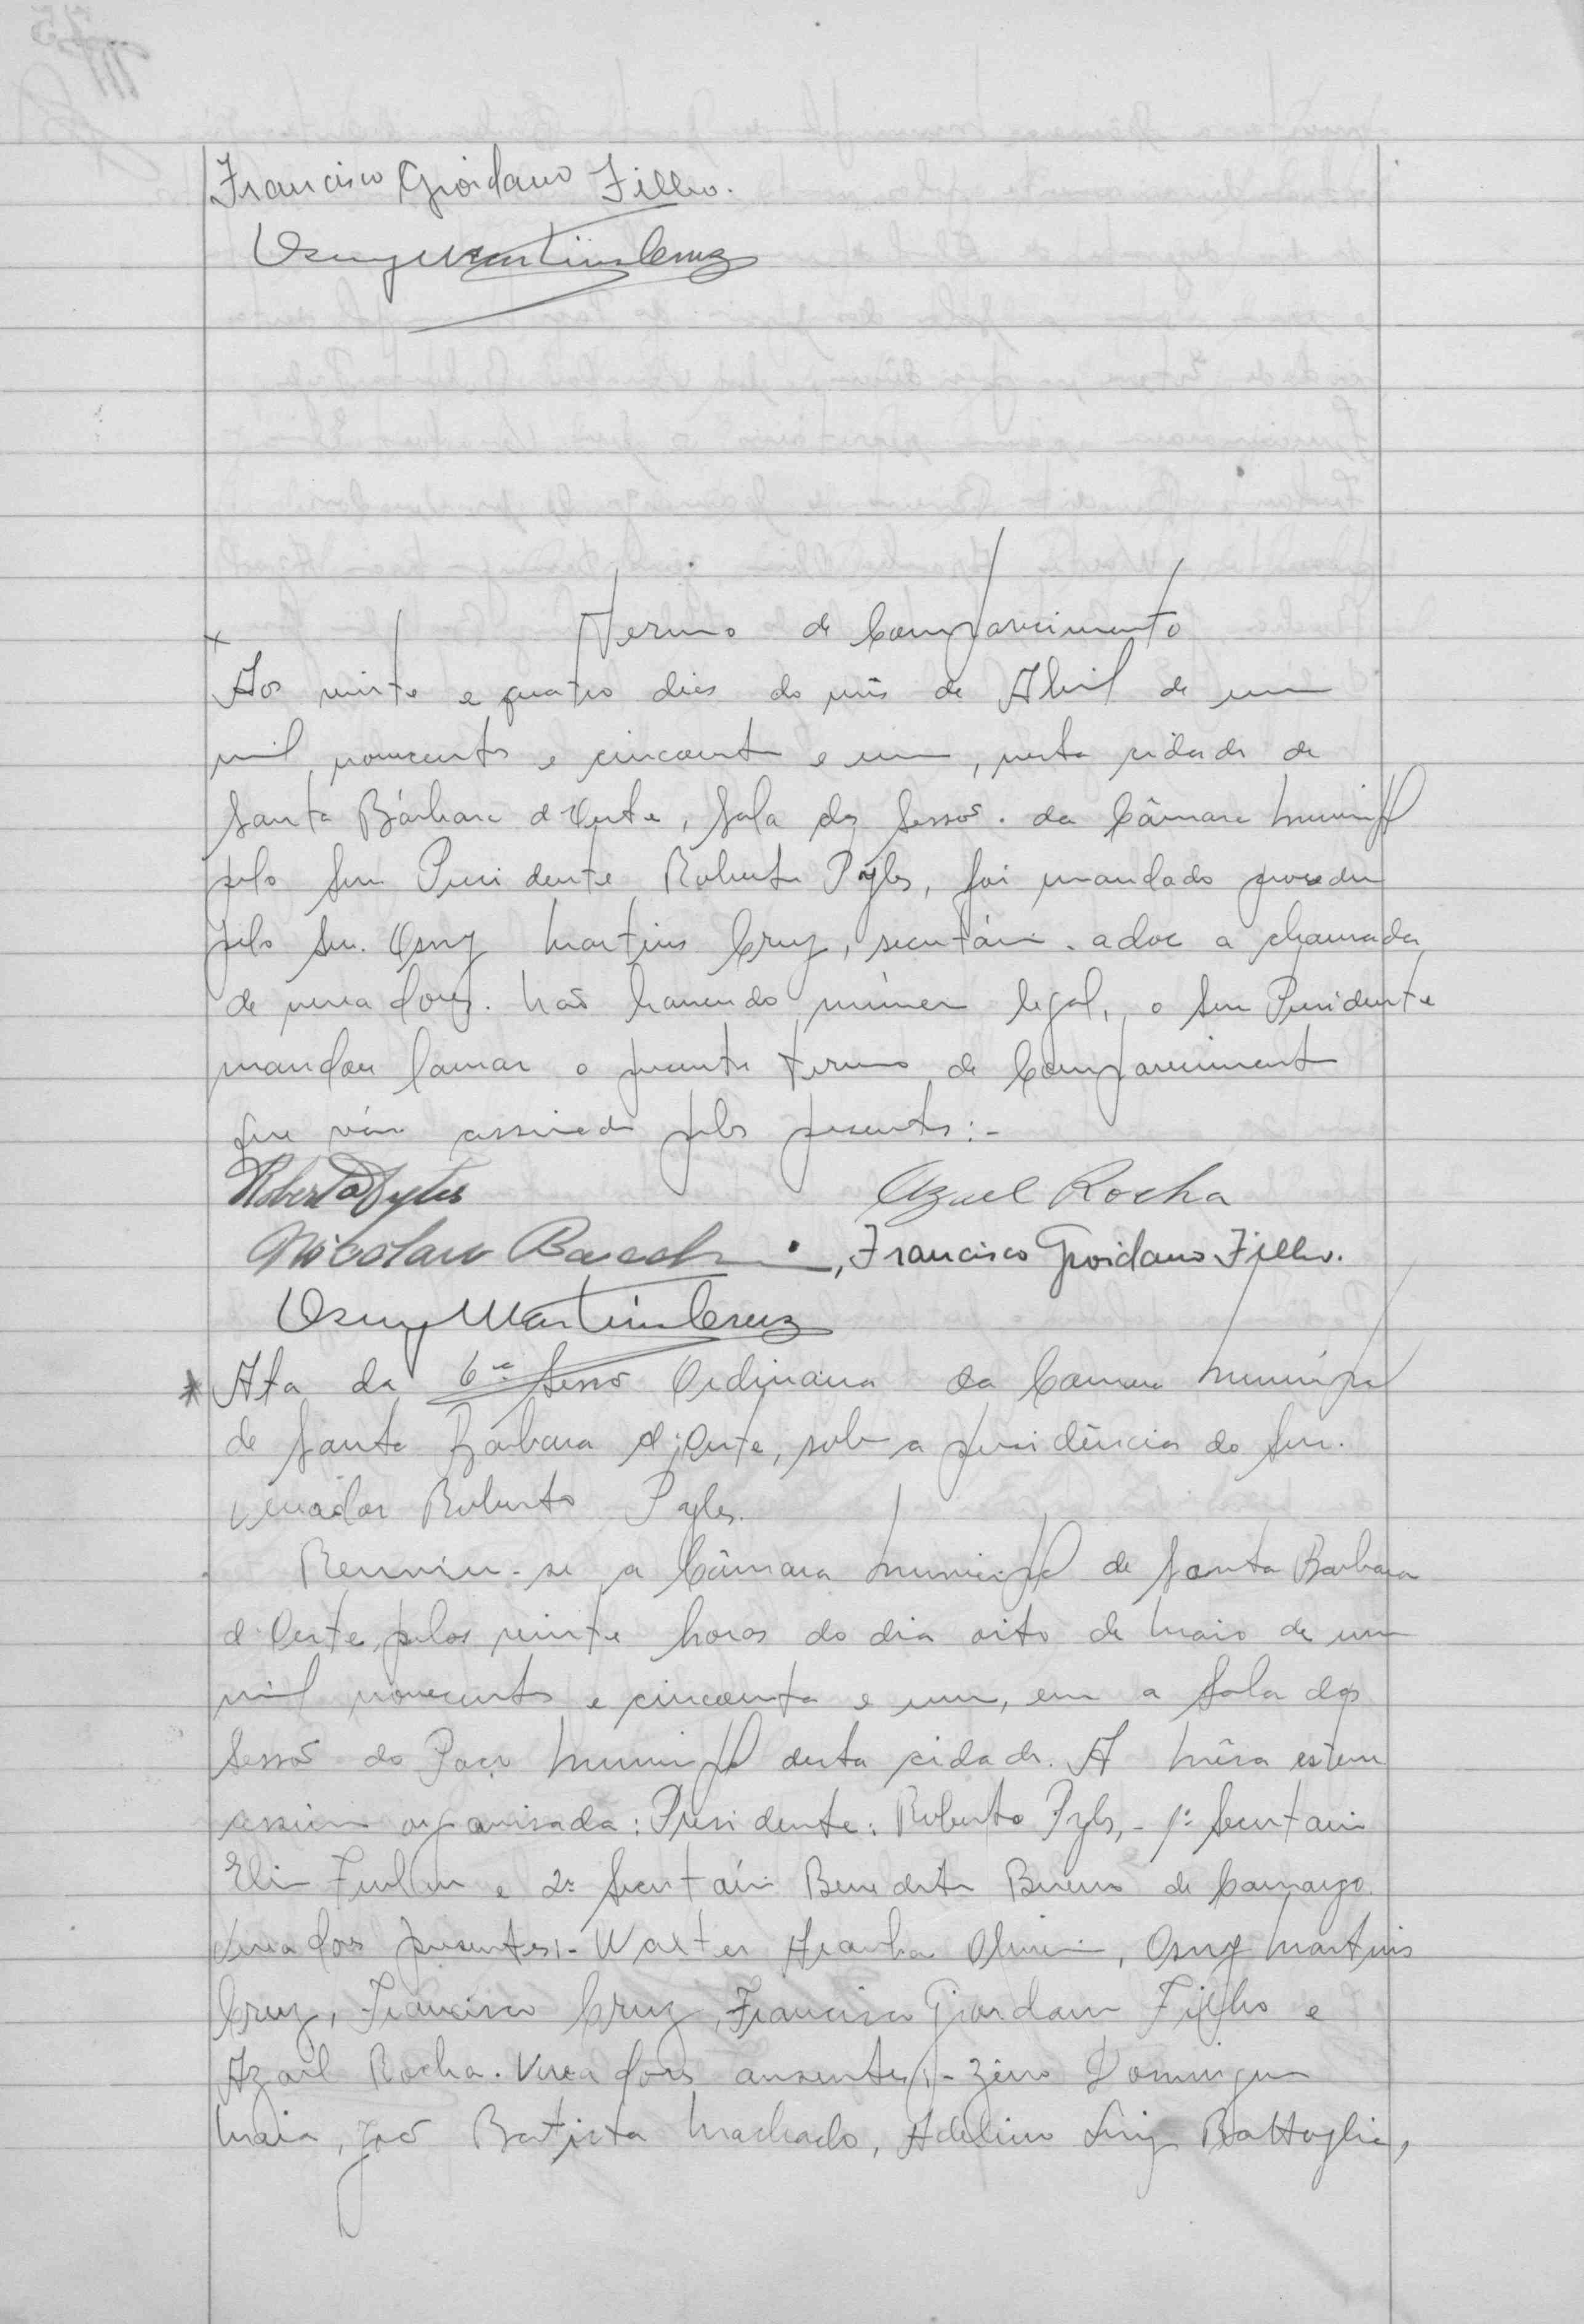 Francisco Giordano Filho.
Osny Martins Cruz
Termo de Comparecimento
Aos vinte e quatro dias do mês de Abril de um
mil novecentos e cincoenta e um, nesta cidade de
Santa Bárbara d'Oeste, Sala das Sessões da Câmara Municipal
pelo Snr. Presidente Roberto Pyles, foi mandado proceder
pelo Snr. Osny Martins Cruz, secretário adoc a chamada
de vereadores. Não havendo número legal, o Snr Presidente
mandou lavrar o presente termo de Comparecimento
que vai assinado pelos presentes:-
Roberto Pyles Azael Rocha
Nicolau Bacchi , Francisco Giordano Filho.
Osny Martins Cruz
* Ata da 6ª Sessão Ordinaria da Camara Municipal
de Santa Barbara d'Oeste, sob a presidência do Snr.
vereador Roberto Pyles.
Reuniu-se a Câmara Municipal de Santa Barbara
d'Oeste, pelas vinte horas do dia oito de Maio de um
mil novecentos e cincoenta e um, em a Sala das
Sessões do Paço Municipal desta cidade. A Mêsa esteve
assim organisada: Presidente: Roberto Pyles,- 1º Secretario
e 2º Secretário Benedito Bueno de Camargo.
Vereadores presentes:- Walter Aranha Oliveira, Osny Martins
Cruz, Francisco Cruz, Francisco Giordano Filho e
Azael Rocha. Vereadores ausentes:- Zeno Domingues
Maia, João Batista Machado, Adelino Luiz Battaglia,